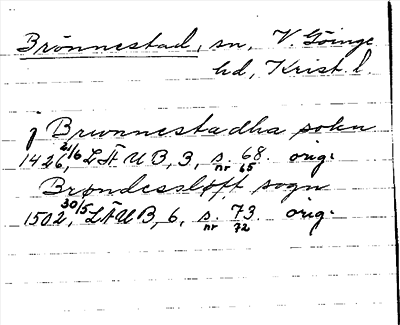 Brönnestad, sn, V. Göinge
hd, Krist. l.
j Brwnnestadha sokn
1426 21/6, LÄUB, 3, s. 68. orig.
nr 65
Brøndessløfft sogn
1502 30/5, LÄUB, 6, s. 73. orig.
nr 72